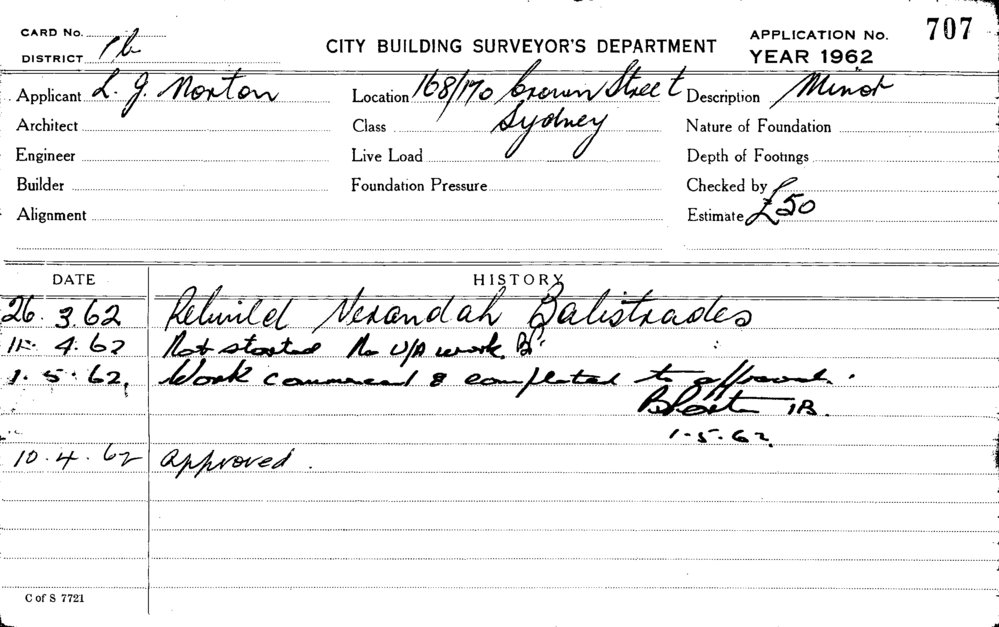 CARD No.
DISTRICT 1b
CITY BUILDING SURVEYOR'S DEPARTMENT
APPLICATION No. 707
YEAR 1962
Applicant L. J. Norton
Location 168/170 Crown Street
Sydney
Description Minor
Architect
Class
Nature of Foundation
Engineer
Live Load
Depth of Footings
Builder
Foundation Pressure
Checked by
Alignment
Estimate £50
DATE HISTORY
26. 3.62 Rebuild Verandah Balistrades
4. 62 Not started No U/A work.
1. 5. 62. Work commenced & completed to approval.
1B.
1-5-62.
10. 4. 62 approved.
C of S 7721